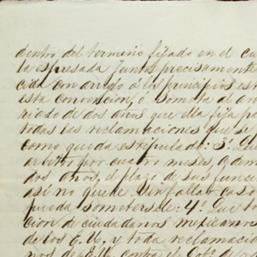 dentro del termino fijado en el
la espresada Junta precisamente
cida con arreglo a los principios
esta Convencion, ó someta al
riodo de dos años que ella fija
todas las reclamaciones que se
como queda estipulado: 3º. Que
arbitro por cuatro meses, a
dos años, el plazo de sus
así no quede sin fallar caso
pueda someterse: 4º. Que
cion de ciudadanos mexicanos
de los E. U. y toda reclamacion
contra el Gob.º de